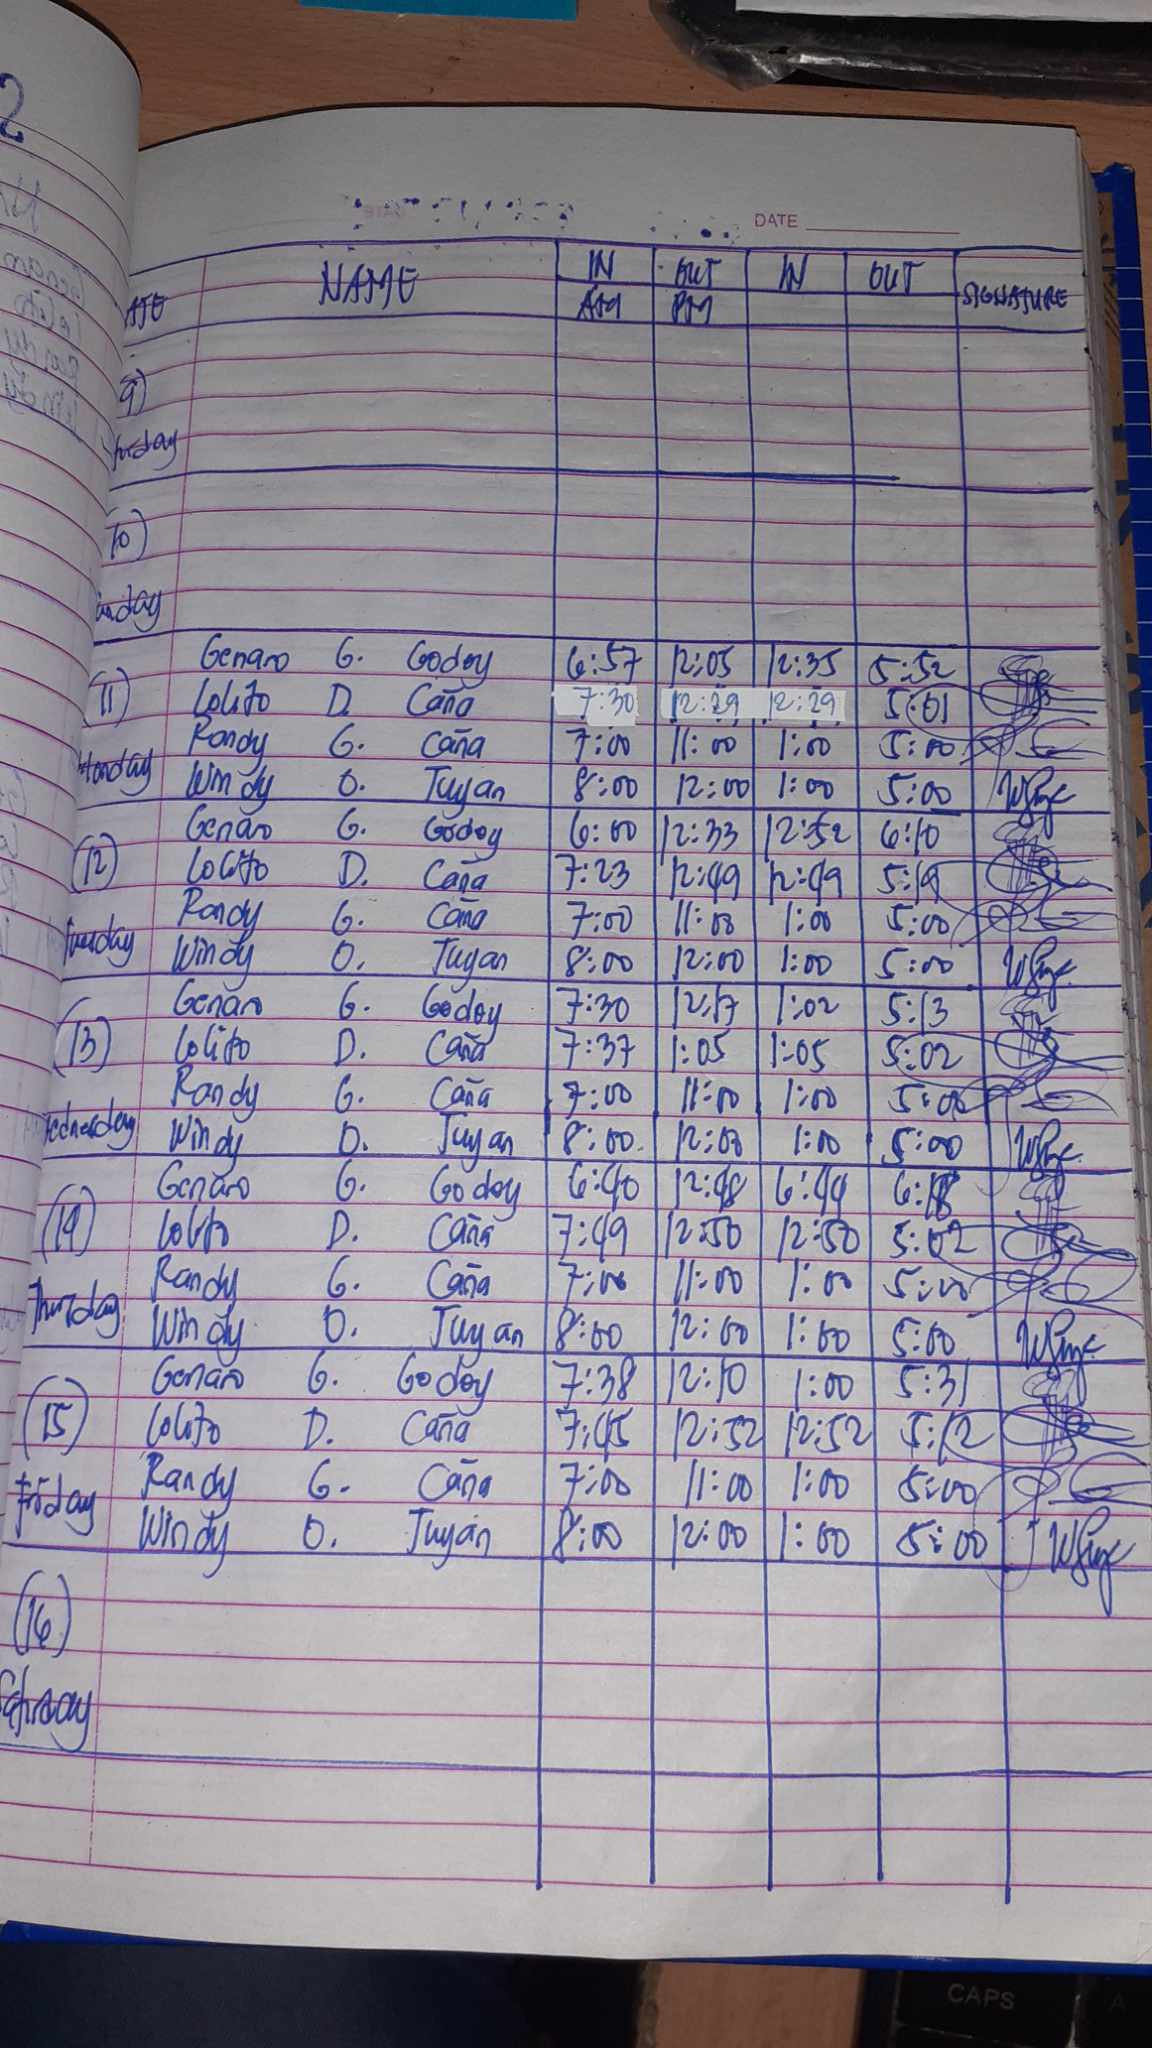 2
DATE
NAME IN OUT IN OUT SIGNATURE
AM PM
9)
10)
Genaro G. Godoy 6:57 12:05 12:35 5:52
(11) Lolito D. Caña 7:30 12:29 12:29 5:01
Randy G. Caña 7:00 11:00 1:00 5:00
Monday Windy O. Tuyan 8:00 12:00 1:00 5:00
Genaro G. Godoy 6:00 12:33 12:52 6:10
(12) Lolito D. Caña 7:23 12:49 12:49 5:19
Randy G. Caña 7:00 11:00 1:00 5:00
Tuesday Windy O. Tuyan 8:00 12:00 1:00 5:00
Genaro G. Godoy 7:30 12:17 1:02 5:13
(13) Lolito D. Caña 7:37 1:05 1:05 5:02
Randy G. Caña 7:00 11:00 1:00 5:00
Wednesday Windy O. Tuyan 8:00 12:00 1:00 5:00
Genaro G. Godoy 6:40 12:48 6:44 6:18
(14) Lolito D. Caña 7:49 12:50 12:50 5:02
Randy G. Caña 7:00 11:00 1:00 5:00
Thursday Windy O. Tuyan 8:00 12:00 1:00 5:00
Genaro G. Godoy 7:38 12:10 1:00 5:31
(15) Lolito D. Caña 7:45 12:52 12:52 5:12
Randy G. Caña 7:00 11:00 1:00 5:00
Friday Windy O. Tuyan 8:00 12:00 1:00 5:00
(16)
Saturday
CAPS
A